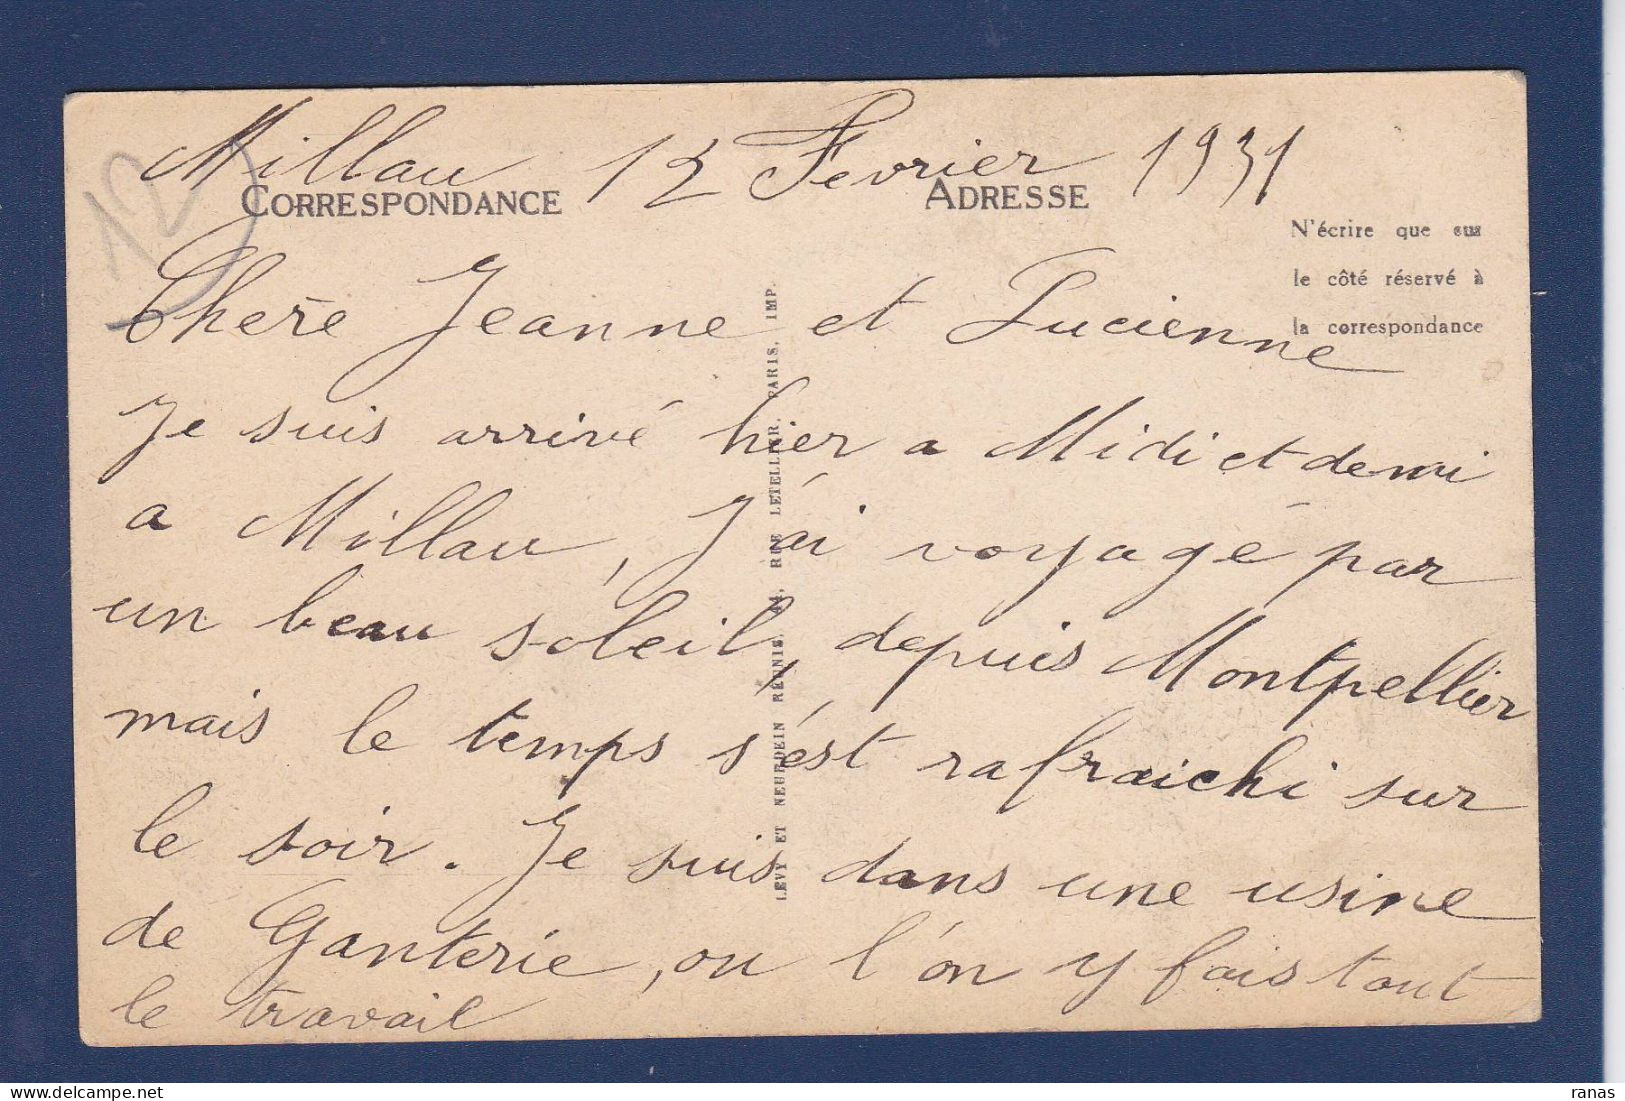 Millau 12 Fevrier 1931
12
CORRESPONDANCE
ADRESSE
N'écrire que sur
le côté réservé à
la correspondance
Chère Jeanne et Lucienne
Je suis arrivé hier a Midi et demi
a Millau, J'ai voyagé par
un beau soleil, depuis Montpellier
mais le temps s'est rafraichi sur
le soir. Je suis dans une usine
de Ganterie, ou l'on y fais tout
le travail
LEVY ET NEURDEIN RÉUNIS, 44, RUE LETELLIER, PARIS, IMP.
ranas